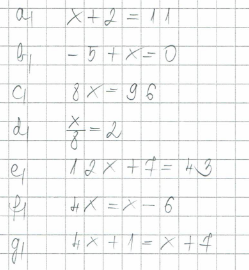 a) x + 2 = 11
b) - 5 + x = 0
c) 8x = 96
d) x/8 = 2
e) 12x + 7 = 43
f) 4x = x - 6
g) 4x + 1 = x + 7